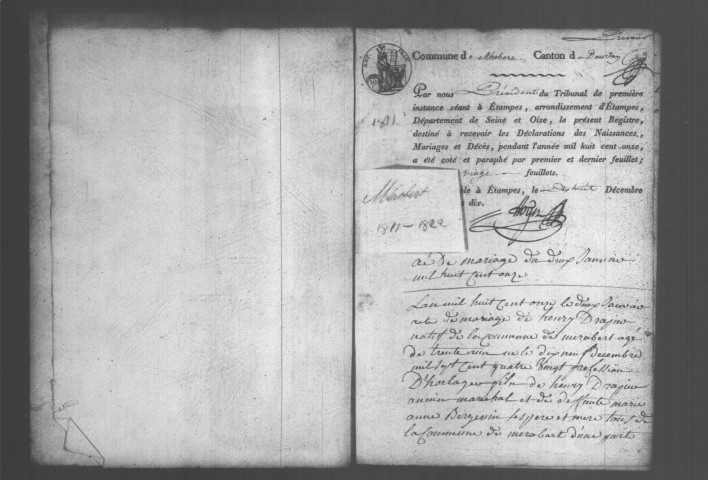 Premier
Commune d Canton d
Par nous Président du Tribunal de première
instance séant à Étampes, arrondissement d'Étampes,
Département de Seine et Oise, le présent Registre,
destiné à recevoir les Déclarations des Naissances,
Mariages et Décès, pendant l'année mil huit cent onze,
a été coté et paraphé par premier et dernier feuillet;
feuillets.
à Étampes, le dix huit Décembre
dix.
1811
Mérobert
1811 - 1822
de mariage du deux Janvier
mil huit cent onze
Lan mil huit cent onze le deux Janvier
acte de mariage de henry
natif de la commune de merobert agé
de trente un né le dix neuf Decembre
mil sept cent quatre vingt profession
D'horloger fils de henry
ancien marechal et de deffunte marie
anne Bergevin ses pere et mere tous de
la Commune de merobert d'une part